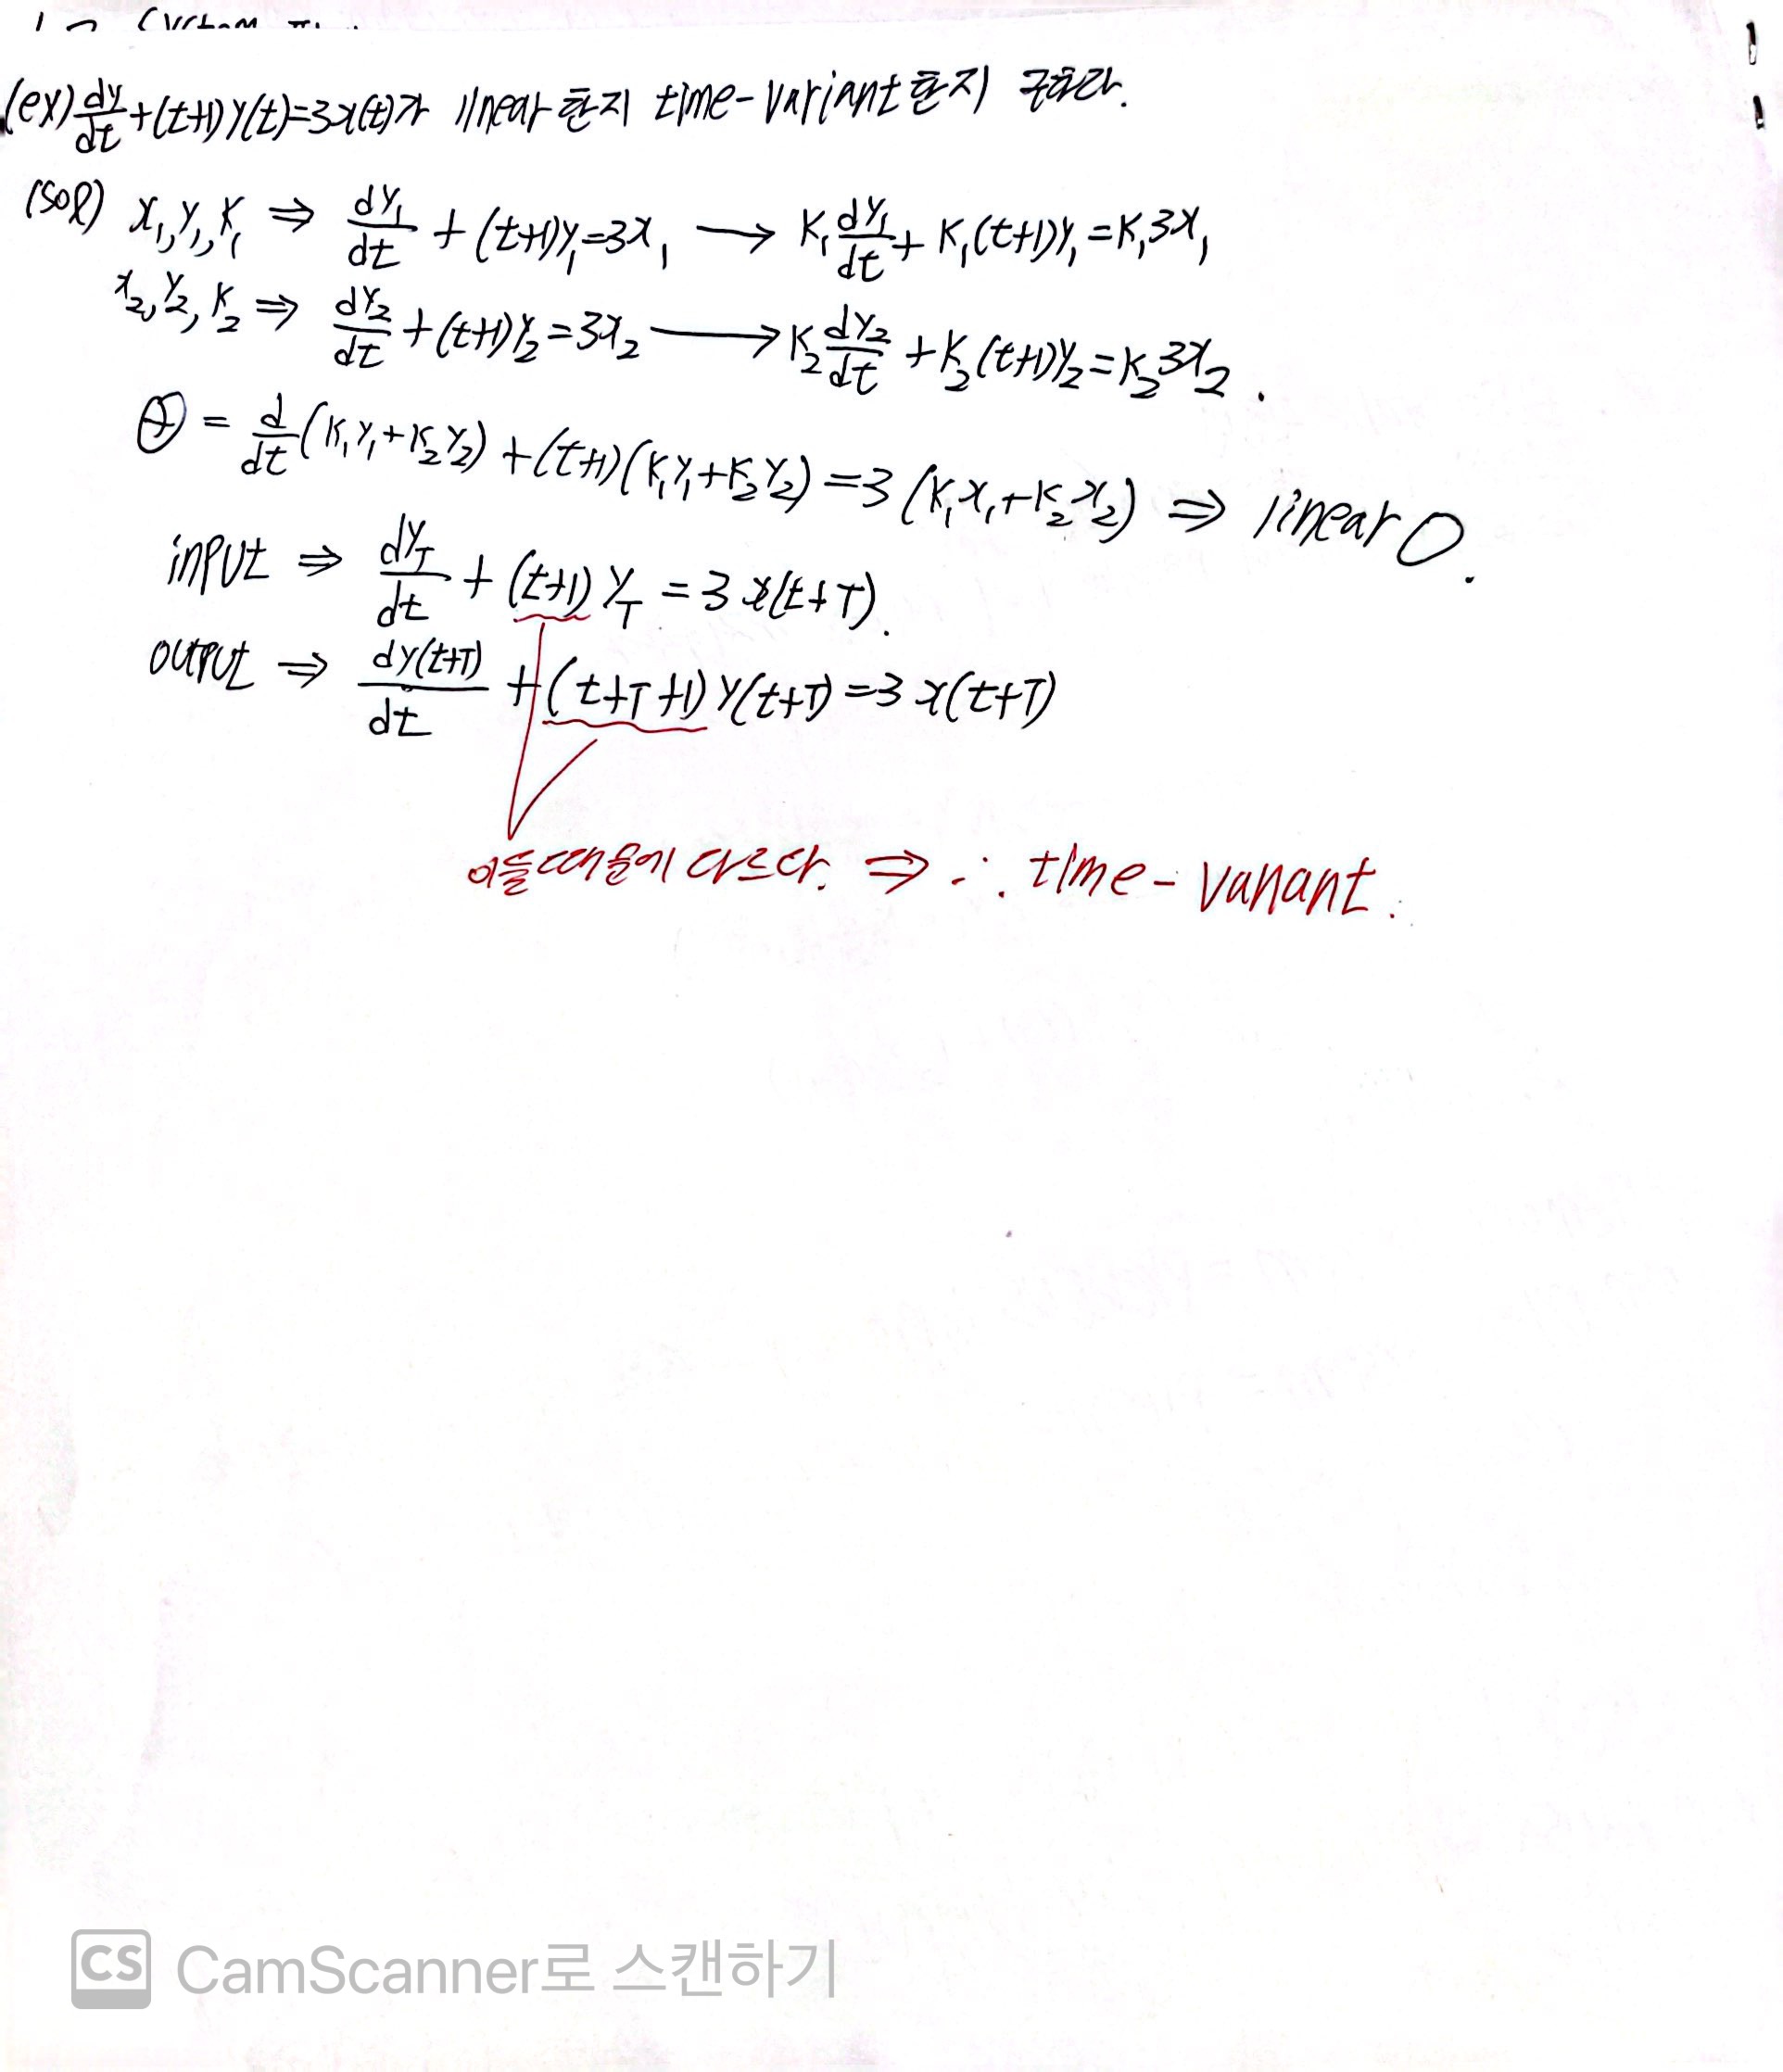 (ex) dy/dt + (t+1) y(t) = 3x(t)가 linear한지 time-variant한지 구하라.
(sol) x₁, y₁, K₁ ⇒ dy₁/dt + (t+1)y₁ = 3x₁ → K₁ dy₁/dt + K₁(t+1)y₁ = K₁3x₁
x₂, y₂, K₂ ⇒ dy₂/dt + (t+1)y₂ = 3x₂ → K₂ dy₂/dt + K₂(t+1)y₂ = K₂3x₂.
⊕ = d/dt (K₁y₁+K₂y₂) + (t+1)(K₁y₁+K₂y₂) = 3(K₁x₁+K₂x₂) ⇒ linear O.
input ⇒ dy_T/dt + (t+1) y_T = 3x(t+T).
output ⇒ dy(t+T)/dt + (t+T+1) y(t+T) = 3x(t+T)
이들때문에 다르다. ⇒ ∴ time-variant.
CS CamScanner로 스캔하기